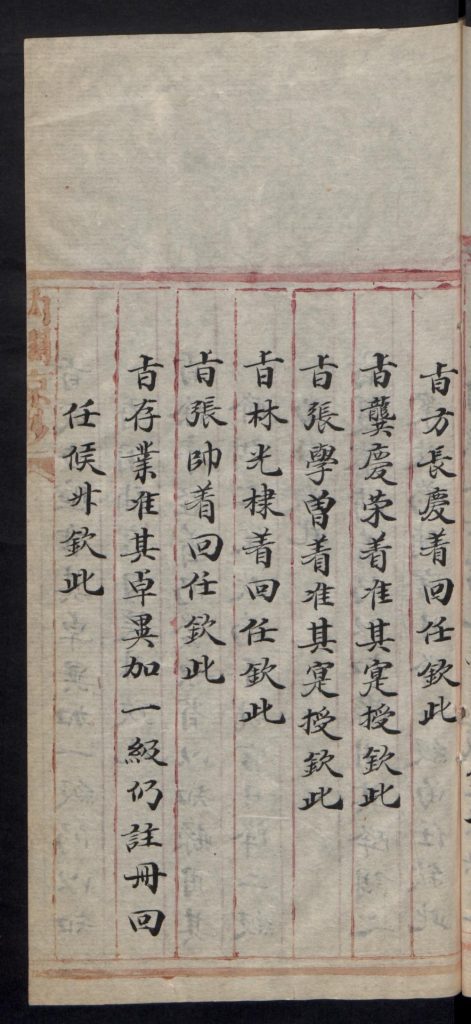 旨方長慶着回任欽此
旨龔慶荣着准其寔授欽此
旨張學曾着准其寔授欽此
旨林光棣着回任欽此
旨張帥着回任欽此
旨存業准其卓異加一級仍註冊回
任候升欽此